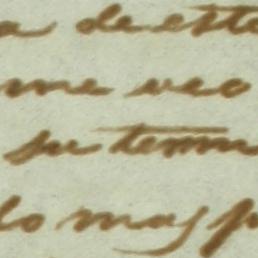 a de este
me veo
su termi
lo mas p